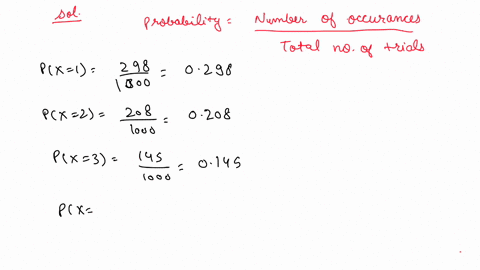 Sol.
Probability = Number of occurances / Total no. of trials
P(X=1) = 298/1000 = 0.298
P(X=2) = 208/1000 = 0.208
P(X=3) = 145/1000 = 0.145
P(X=